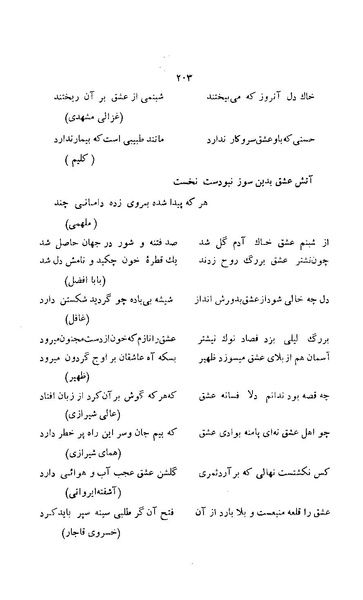 ۲۰۳
خاك دل آنروز كه مى‌بيختند شبنمى از عشق بر آن ريختند
(غزالى مشهدى)
حسنى كه با و عشق سر و كار ندارد مانند طبيبى است كه بيمار ندارد
(كليم)
آتش عشق بدين سوز نبودست نخست
هر كه پيدا شده بروى زده دامانى چند
(ملهمى)
از شبنم عشق خاك آدم گل شد صد فتنه و شور در جهان حاصل شد
چون نشتر عشق بررگ روح زدند يك قطرهٔ خون چكيد و نامش دل شد
(بابا افضل)
دل چه خالى شود از عشق بدورش انداز شيشه بى‌باده چو گرديد شكستن دارد
(غافل)
بررگ ليلى بزد فصاد نوك نيشتر عشق را نازم كه خون از دست مجنون ميرود
آسمان هم از بلاى عشق ميسوزد ظهير بسكه آه عاشقان بر اوج گردون ميرود
(ظهير)
چه قصه بود ندانم دلا فسانه عشق كه هر كه گوش بر آن كرد از زبان افتاد
(عالى شيرازى)
چو اهل عشق نه‌اى پامنه بوادى عشق كه بيم جان و سر اين راه پر خطر دارد
(هماى شيرازى)
كس نكشتست نهالى كه بر آرد ثمرى گلشن عشق عجب آب و هوائى دارد
(آشفته ايروانى)
عشق را قلعه منيعست و بلا بارد از آن فتح آن گر طلبى سينه سپر بايد كرد
(خسروى قاجار)